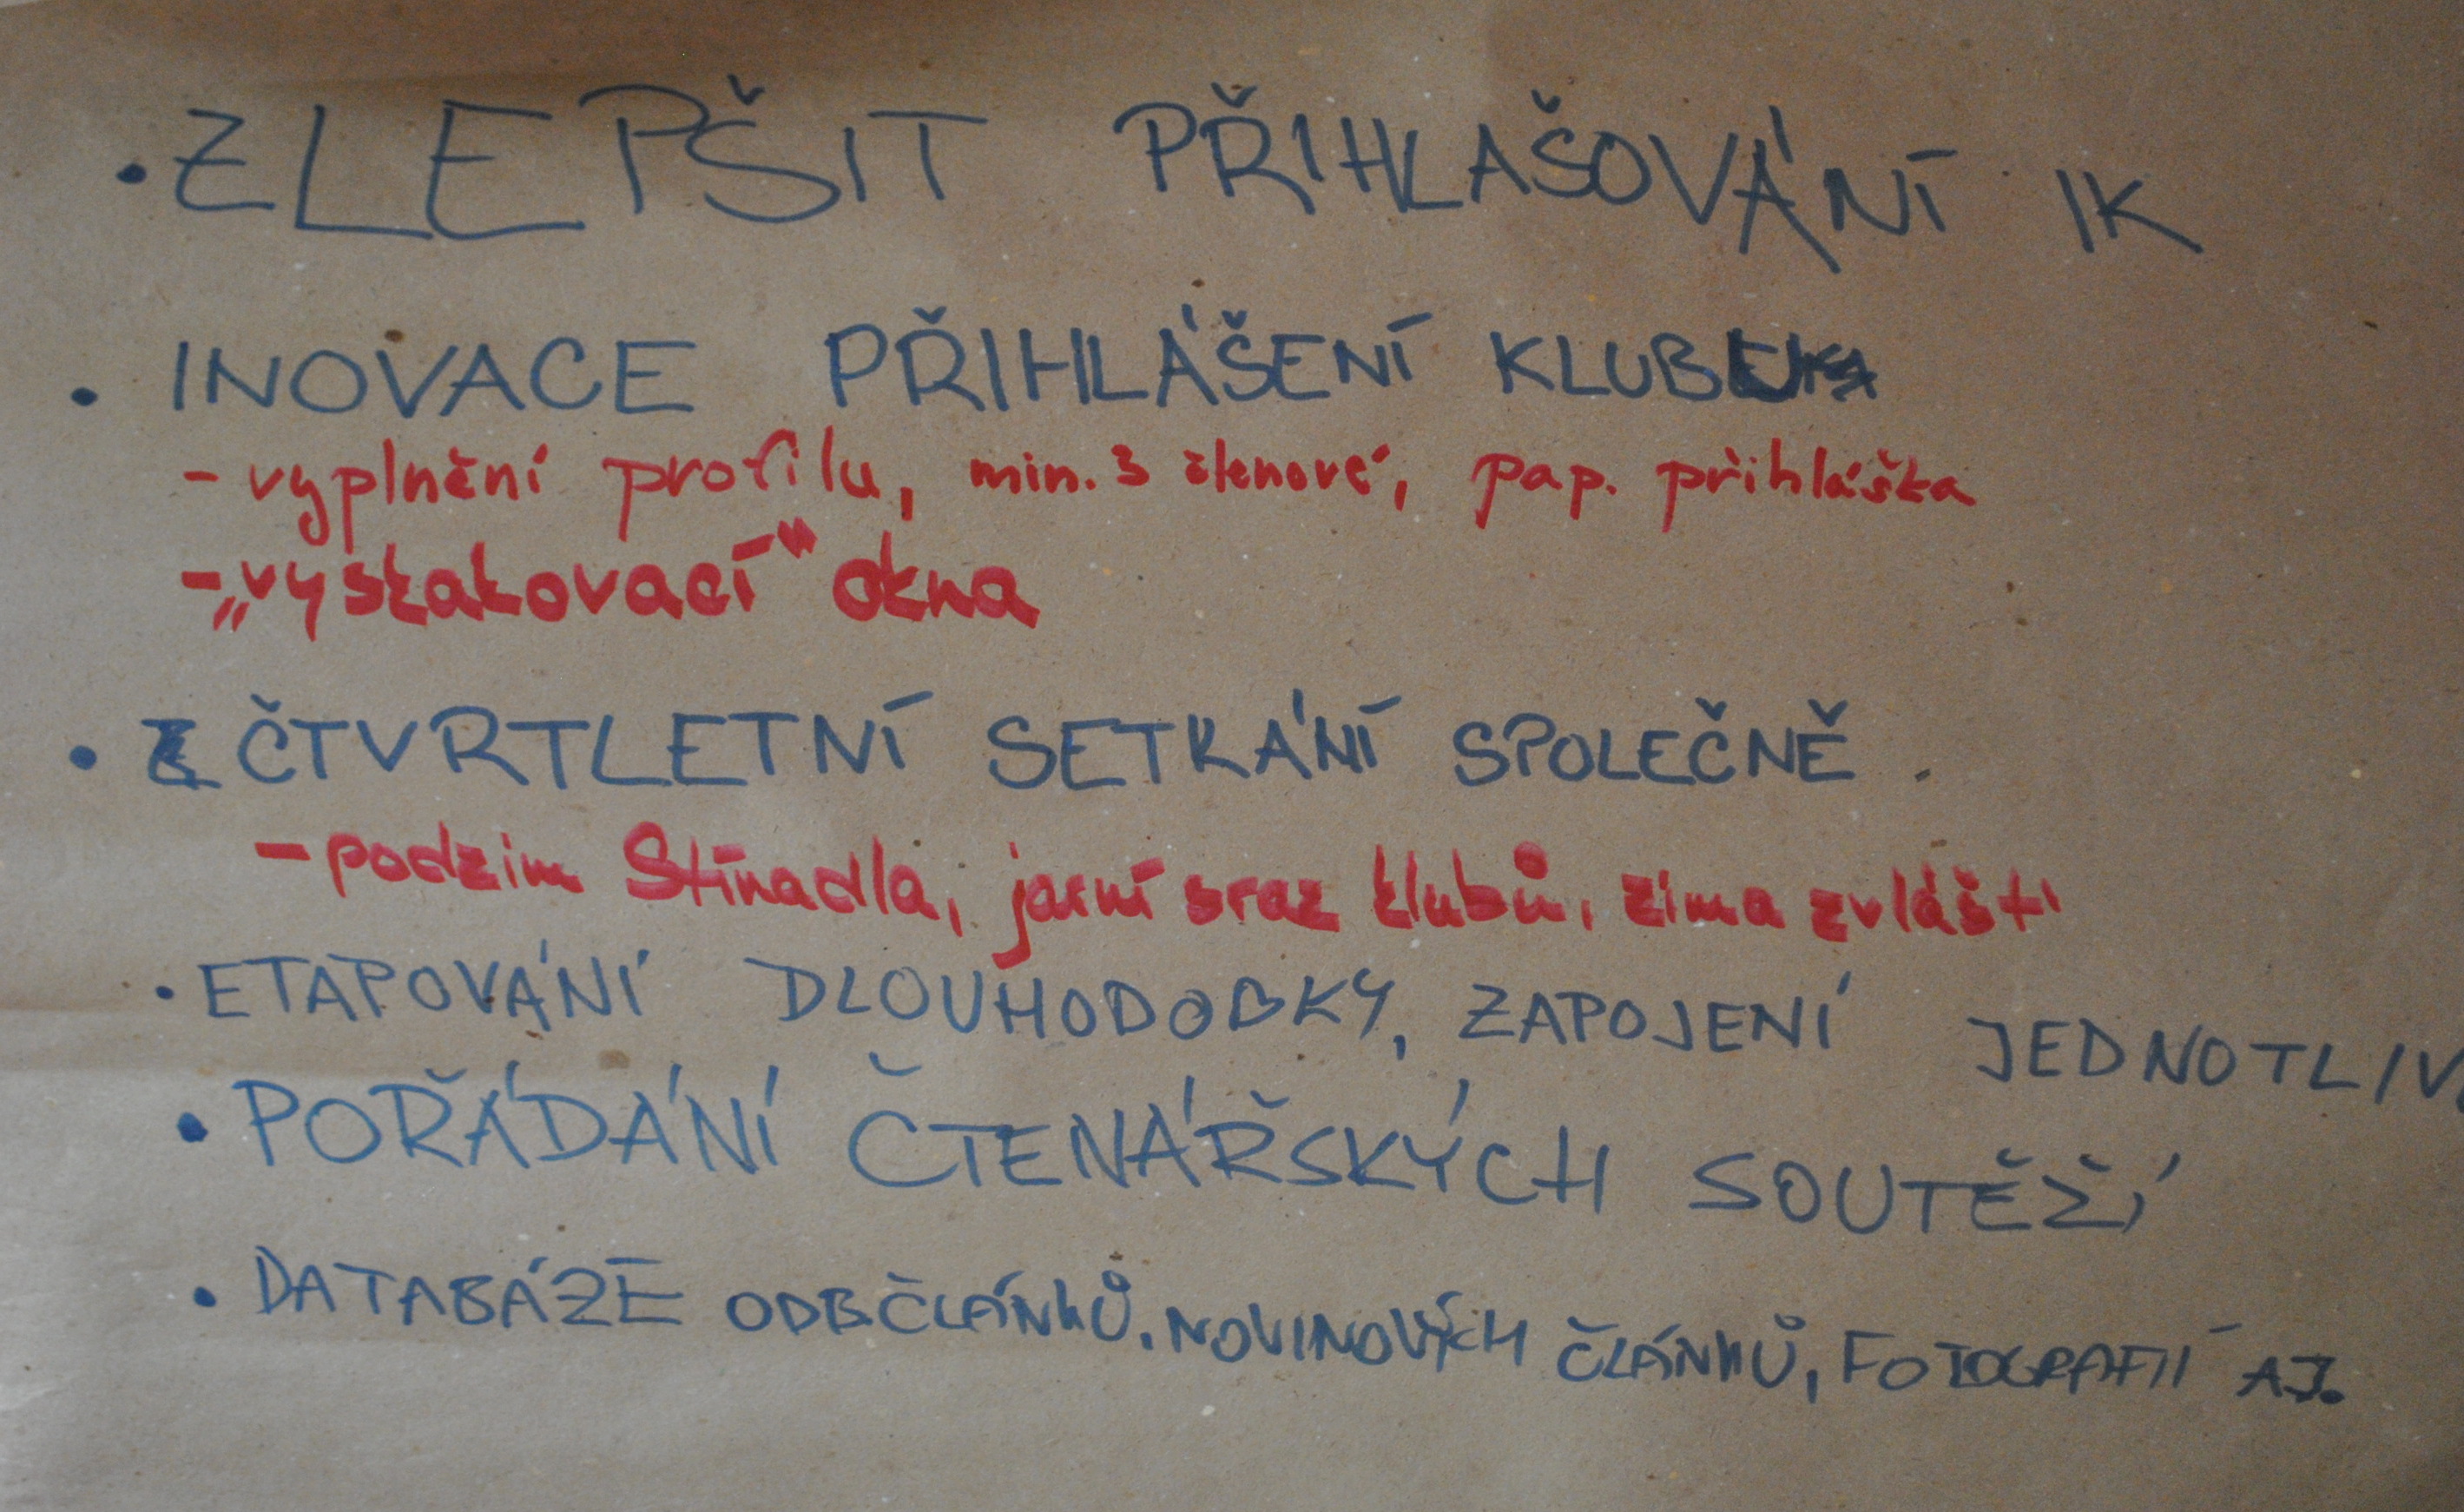 • ZLEPŠIT PŘIHLAŠOVÁNÍ IK
• INOVACE PŘIHLÁŠENÍ KLUBU
- vyplnění profilu, min. 3 členové, pap. přihláška
- „vyskakovací" okna
• ČTVRTLETNÍ SETKÁNÍ SPOLEČNĚ
- podzim Stínadla, jarní sraz klubů, zima zvlášť
• ETAPOVÁNÍ DLOUHODOBKY, ZAPOJENÍ JEDNOTLIV
• POŘÁDÁNÍ ČTENÁŘSKÝCH SOUTĚŽÍ
• DATABÁZE ODB.ČLÁNKŮ, NOVINOVÝCH ČLÁNKŮ, FOTOGRAFIÍ AJ.